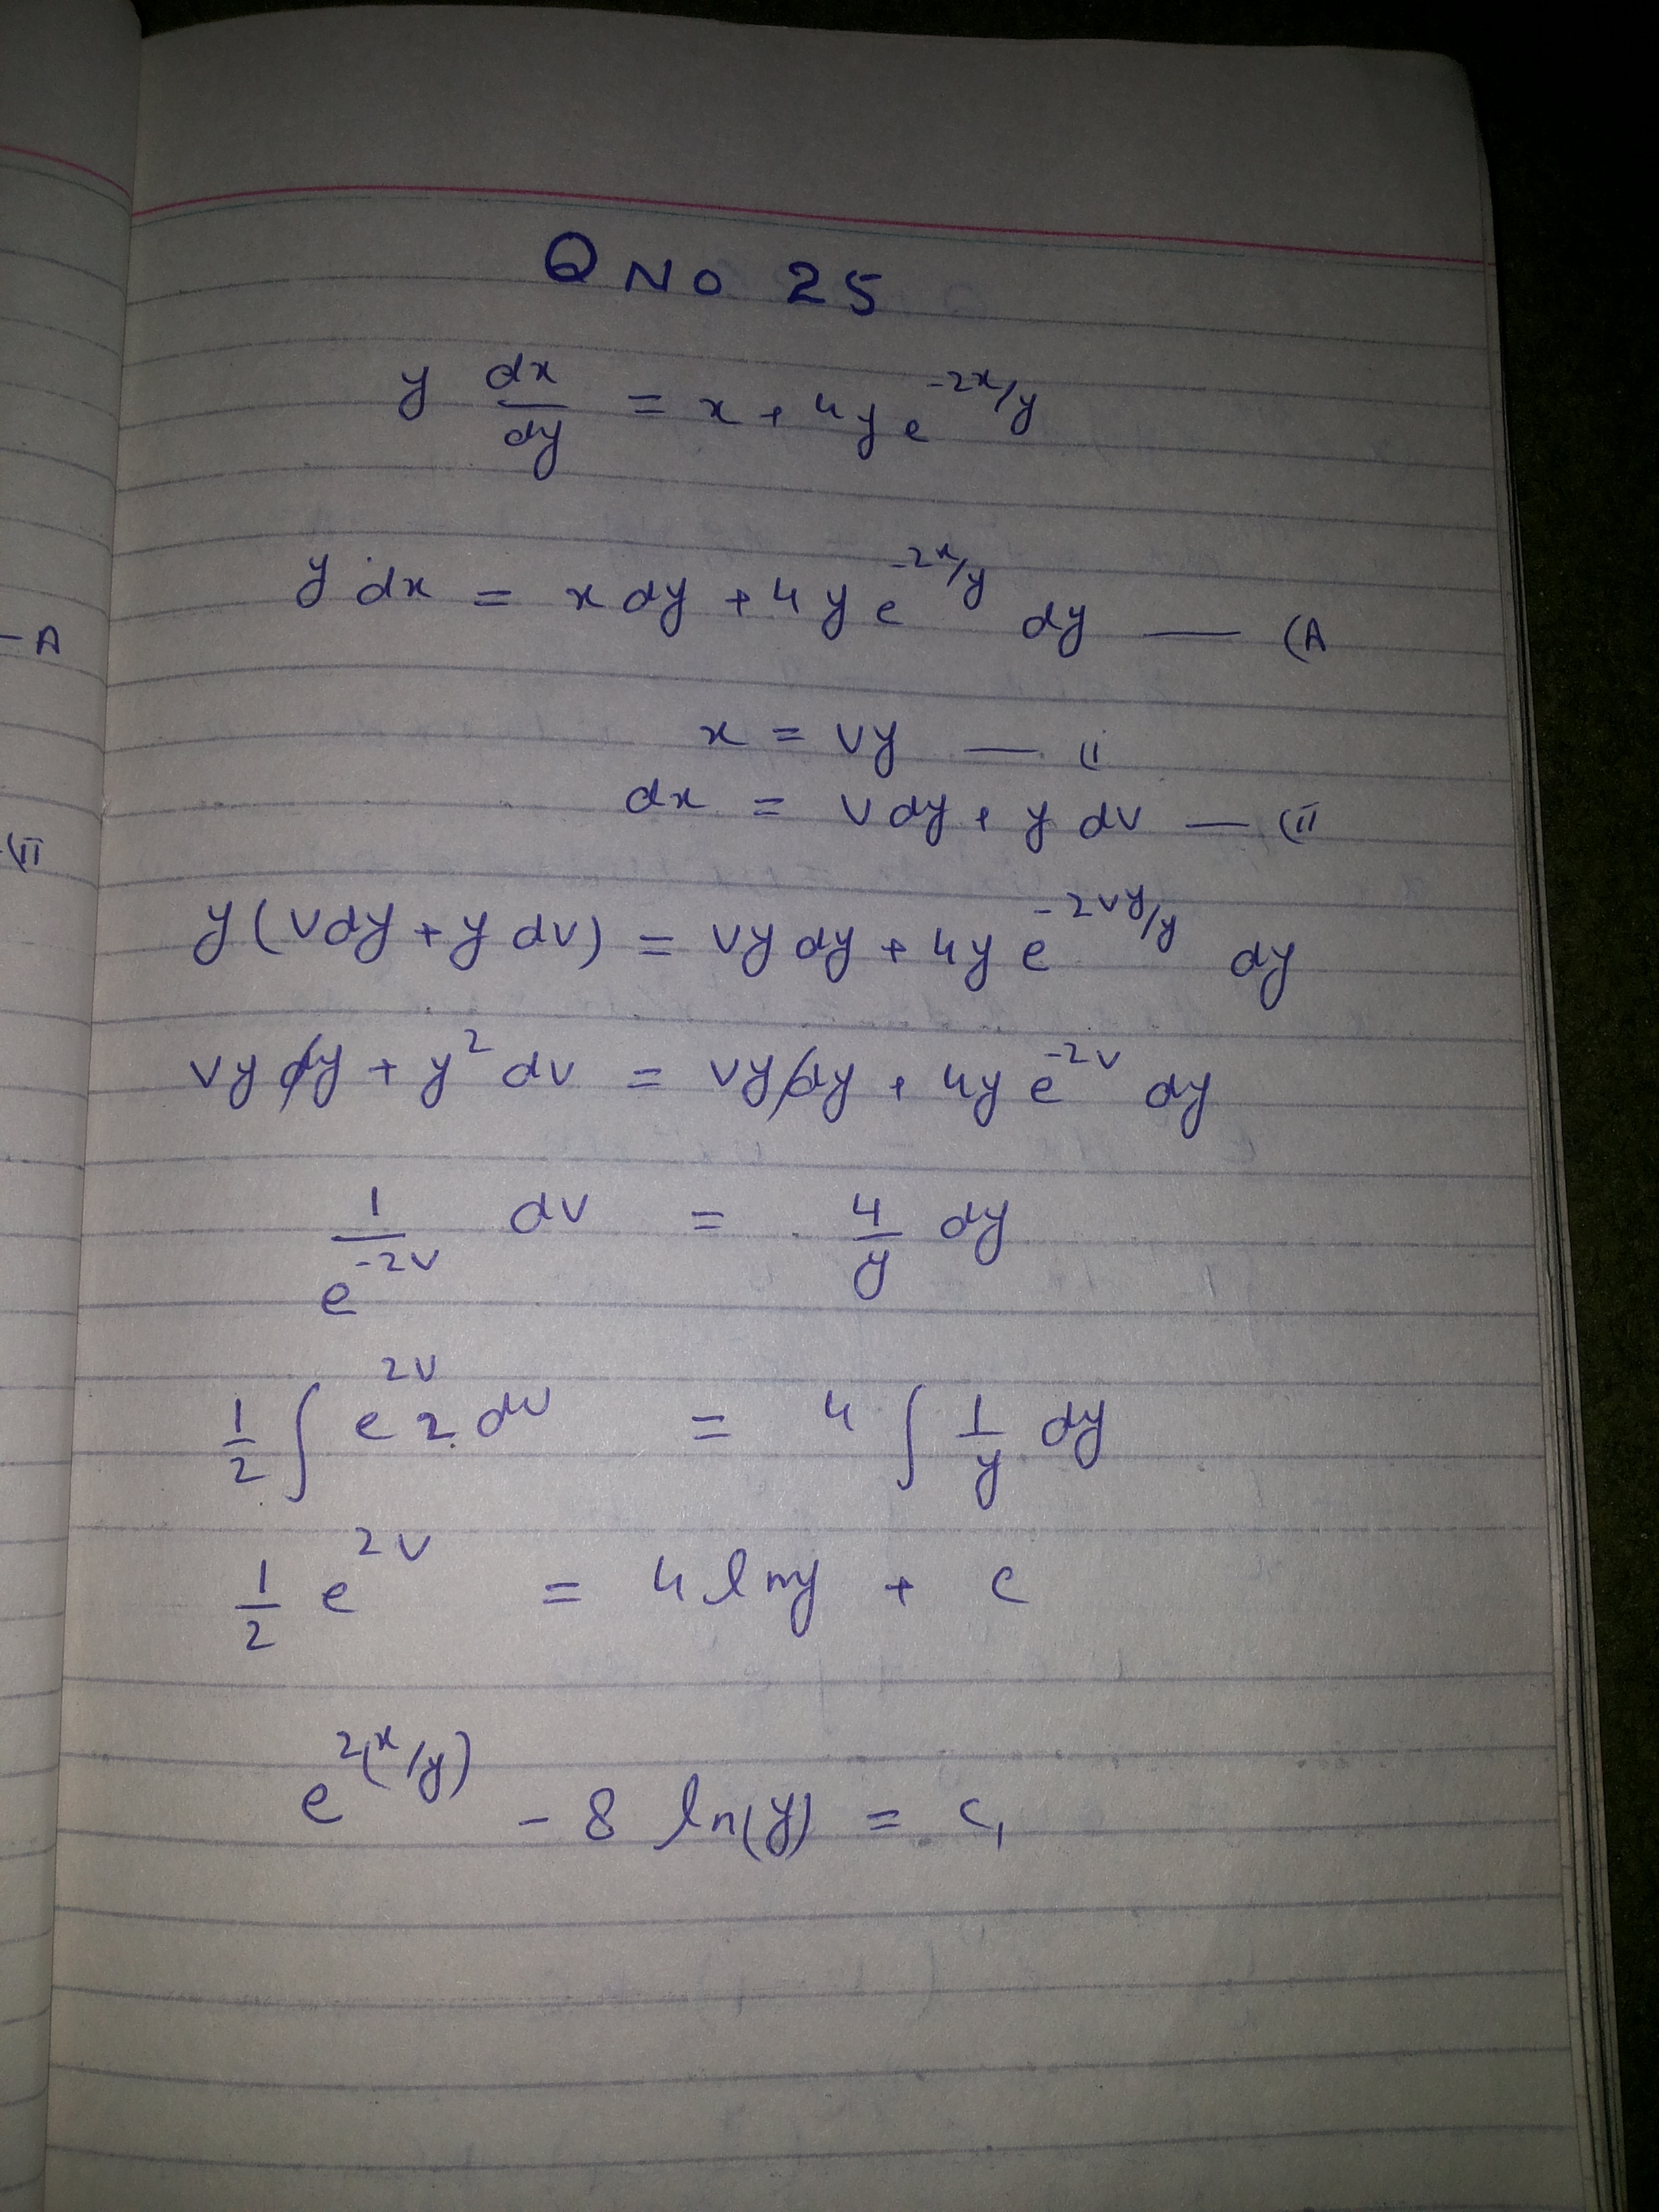 Q No 25
y dx/dy = x + 4y e^(-2x/y)
y dx = x dy + 4 y e^(-2x/y) dy — (A
-A
x = vy — (I
dx = v dy + y dv — (II
-(II
y (v dy + y dv) = vy dy + 4y e^(-2vy/y) dy
vy dy + y² dv = vy dy + 4y e^(-2v) dy
1/e^(-2v) dv = 4/y dy
1/2 ∫ e^(2v) 2 dv = 4 ∫ 1/y dy
1/2 e^(2v) = 4 ln y + c
e^(2(x/y)) - 8 ln(y) = c₁